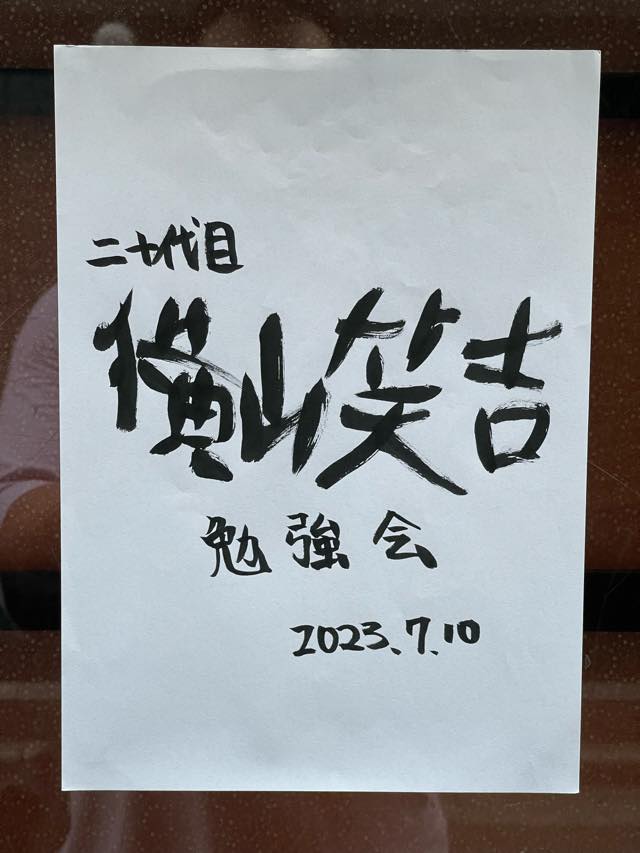 二十代目
横山笑吉
勉強会
2023.7.10